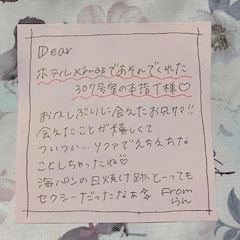 Dear.
ホテルXmasであそんでくれた
307号室の本指で様♡
お久しぶりに会えたお兄サマ!!
会えたことが嬉しくて
ついつい…ソファでえちえちな
ことしちゃったね♡
海パンの日焼け跡とーっても
セクシーだったなぁ
From
らん